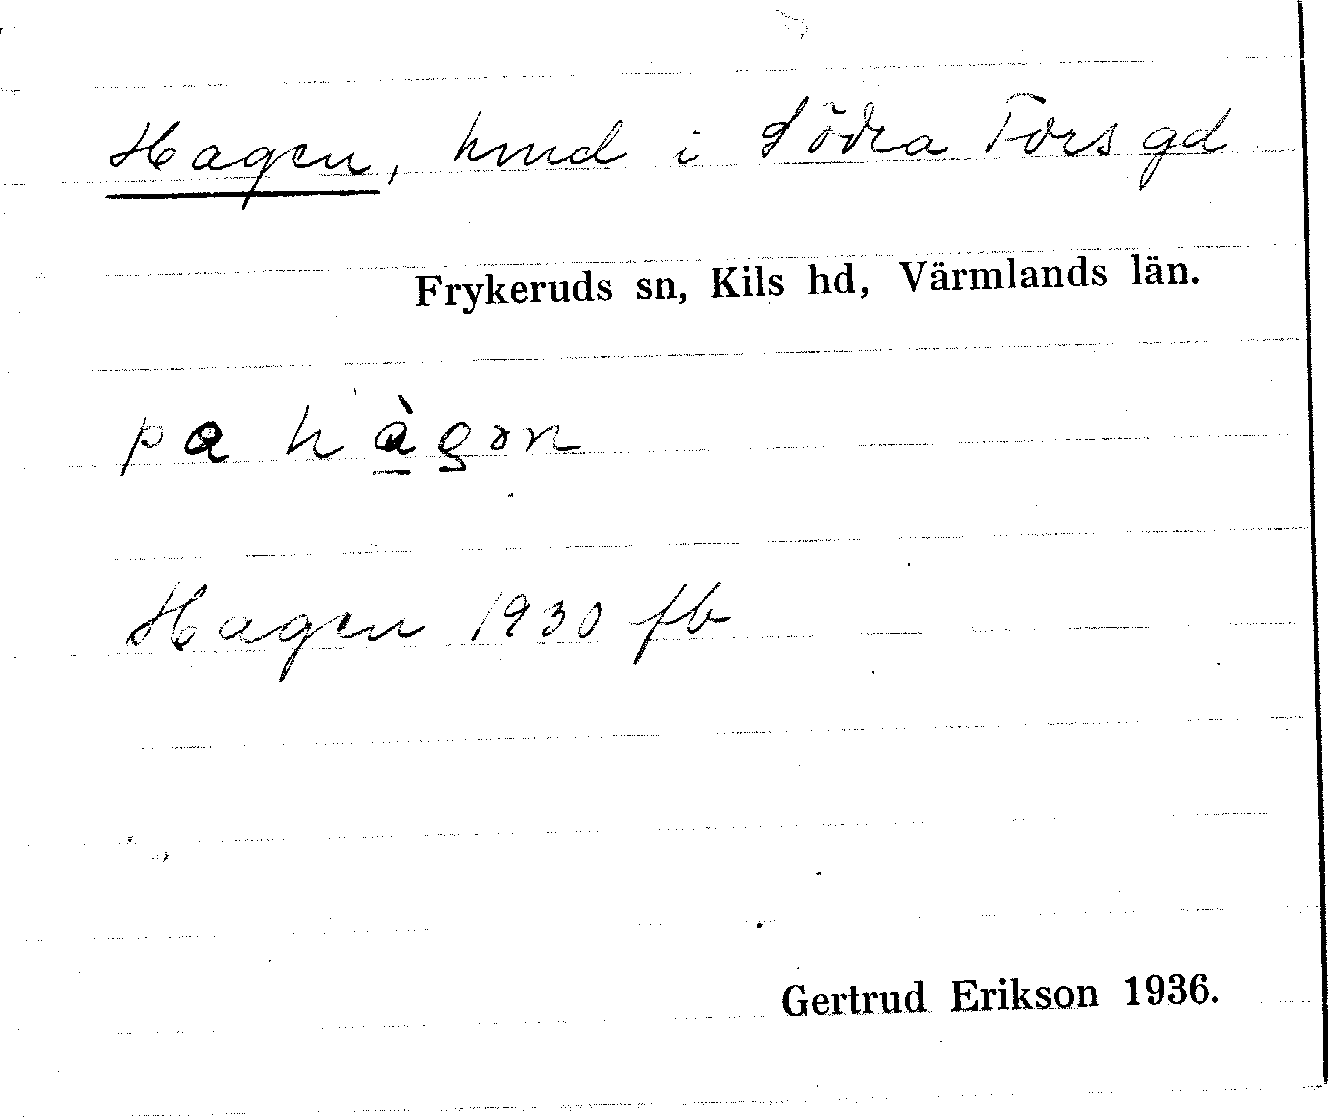 Hagen, hmd i Södra Fors gd
Frykeruds sn, Kils hd, Värmlands län.
pa hàgon
Hagen 1930 fb
Gertrud Erikson 1936.